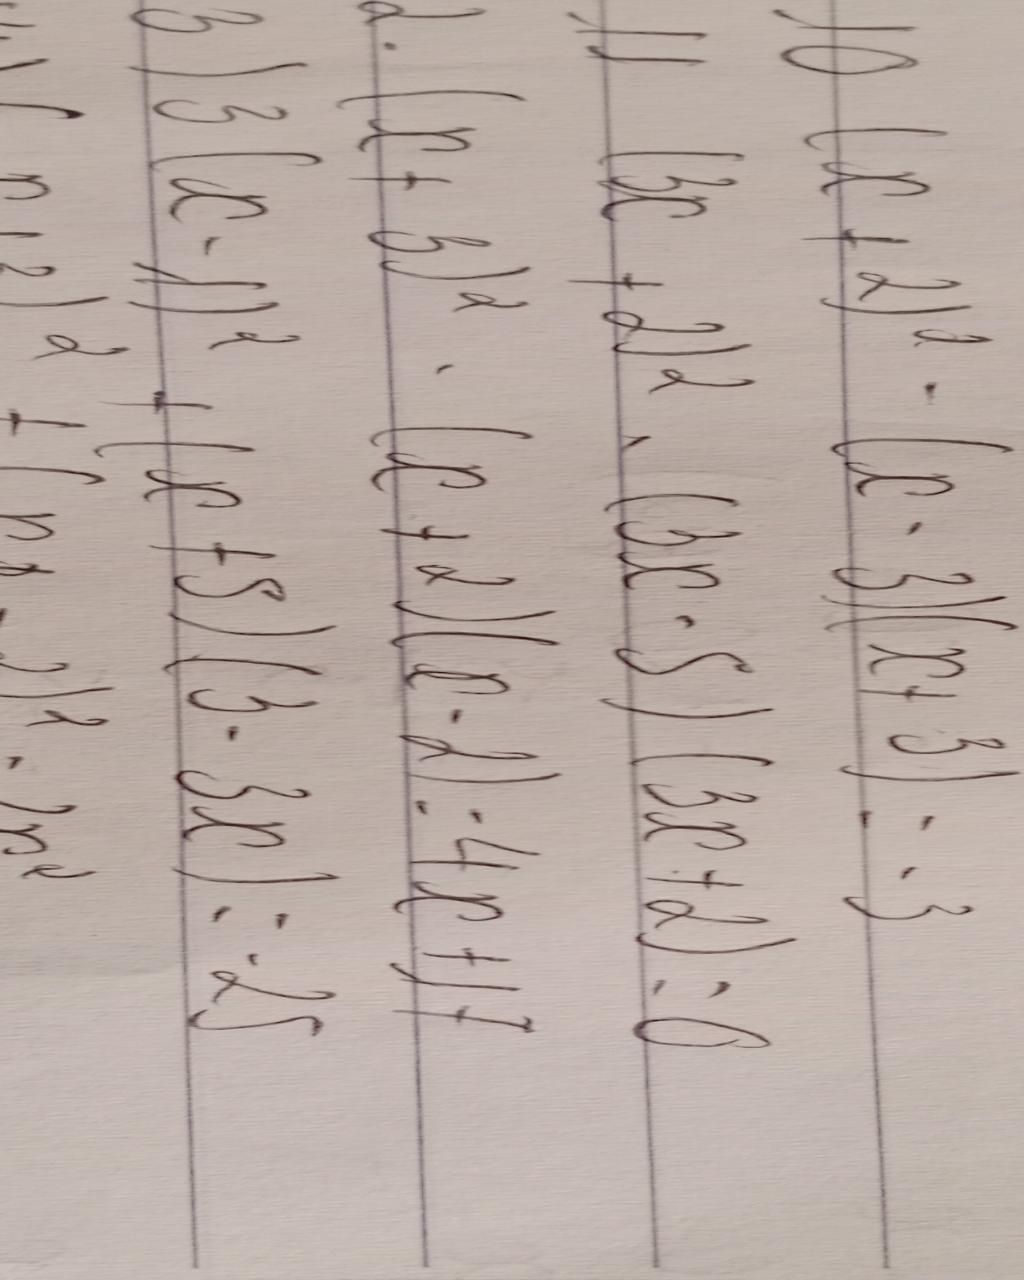 10 (x + 2)² - (x - 3)(x + 3) = -3
11 (3x + 2)² - (3x - 5)(3x + 2) = 0
2. (x + 3)² - (x + 2)(x - 2) = 4x + 17
3) 3(x - 1)² + (x + 5)(3 - 3x) = -25